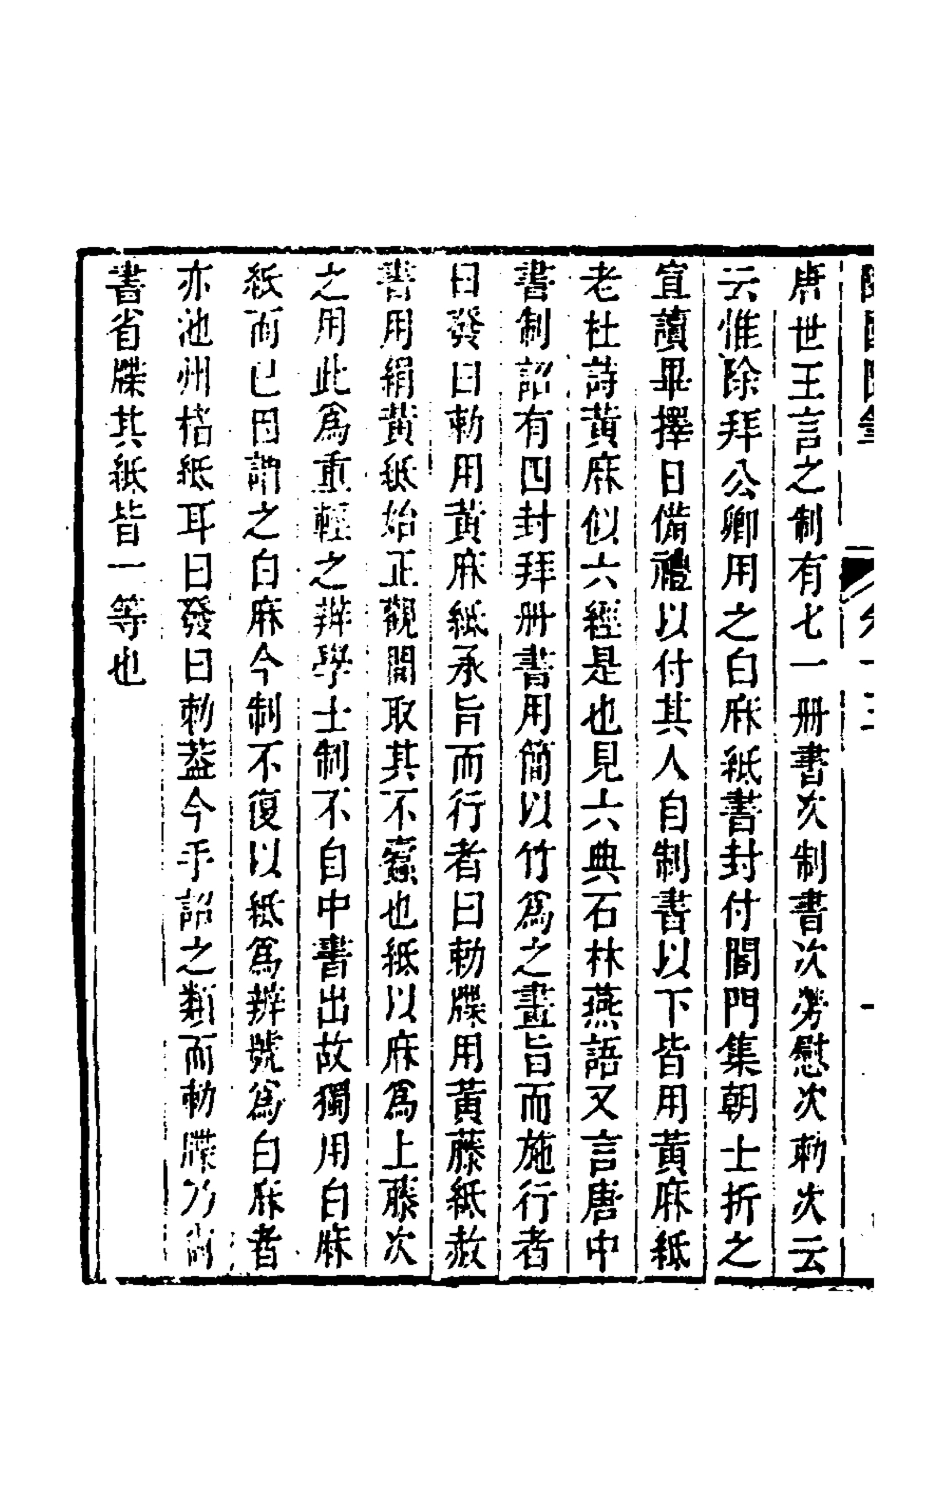 唐世王言之制有七一冊書次制書次勞慰次勅次云
云惟除拜公卿用之白麻紙書封付閤門集朝士折之
宣讀畢擇日備禮以付其人自制書以下皆用黃麻紙
老杜詩黃麻似六經是也見六典石林燕語又言唐中
書制詔有四封拜冊書用簡以竹爲之畫旨而施行者
曰發曰勅用黃麻紙承旨而行者曰勅牒用黃藤紙赦
書用絹黃紙始正觀間取其不蠧也紙以麻爲上藤次
之用此爲重輕之辨學士制不自中書出故獨用白麻
紙而已因謂之白麻今制不復以紙爲辨號爲白麻者
亦池州楮紙耳曰發曰勅葢今手詔之類而勅牒乃尚
書省牒其紙皆一等也